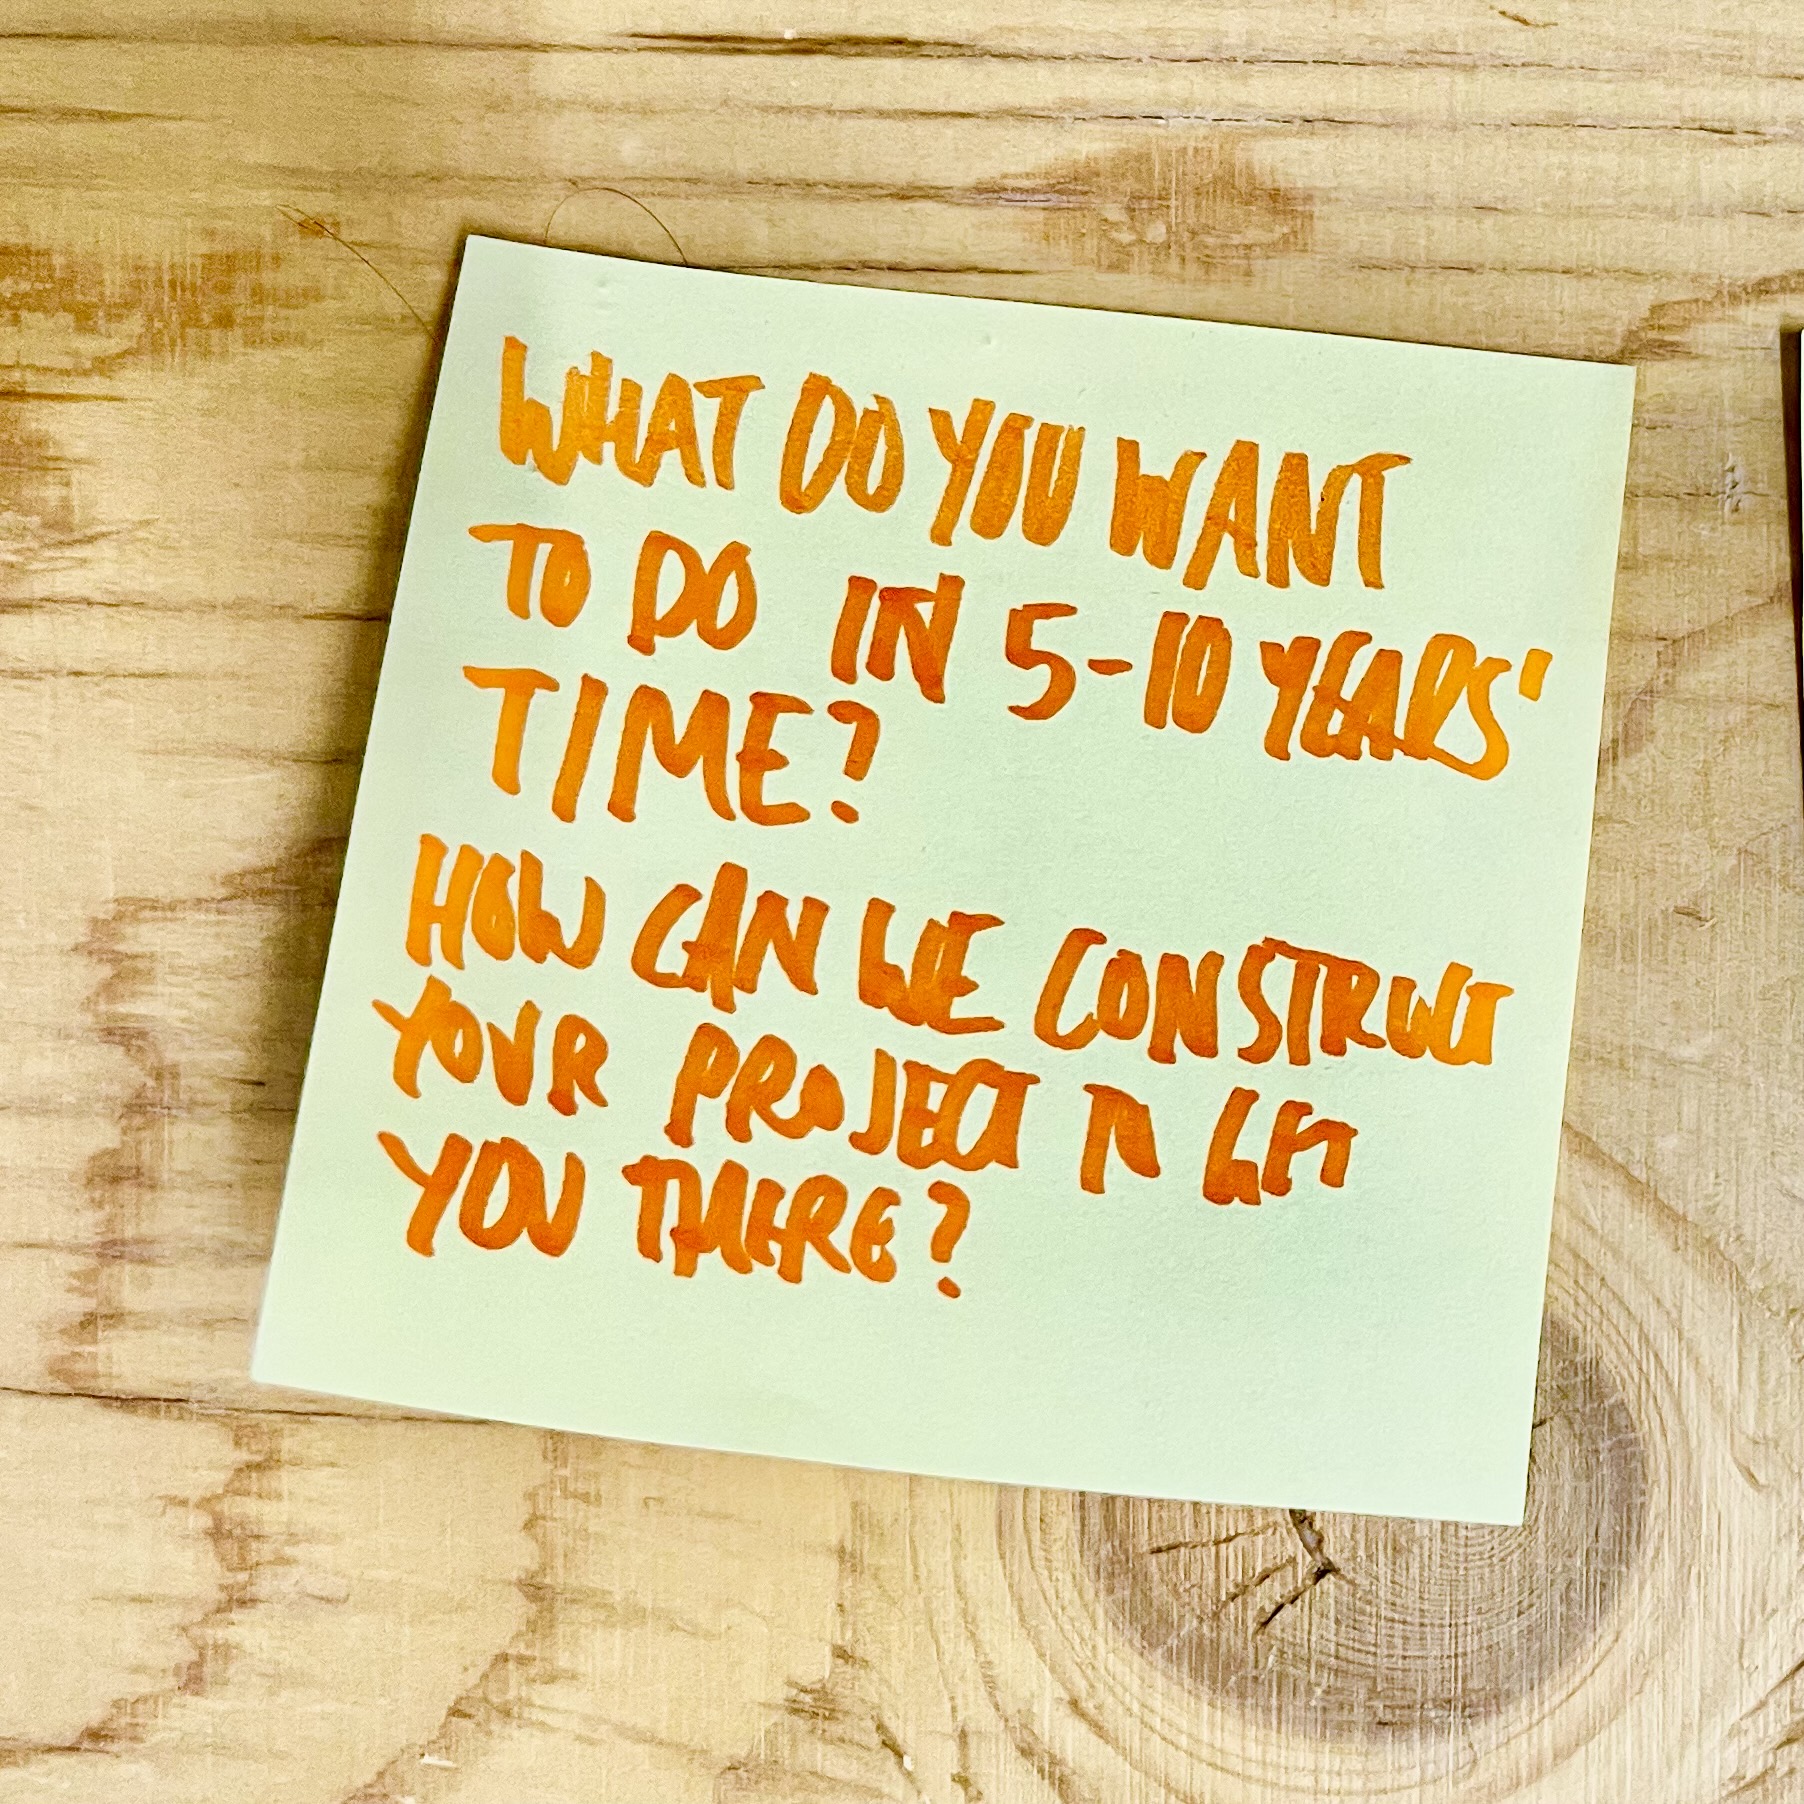 WHAT DO YOU WANT
TO DO IN 5-10 YEARS'
TIME?
HOW CAN WE CONSTRUCT
YOUR PROJECT TO GET
YOU THERE?